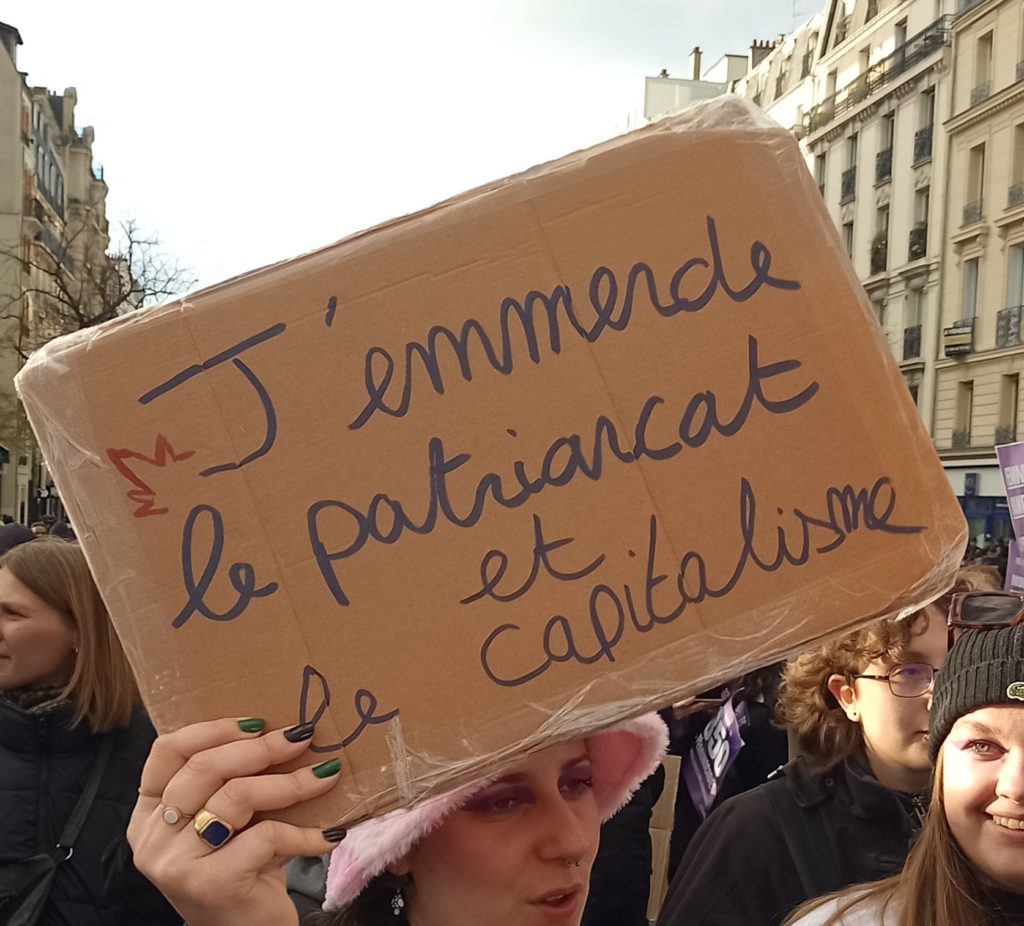 J'emmerde
le patriarcat
et
le capitalisme
A VENDRE